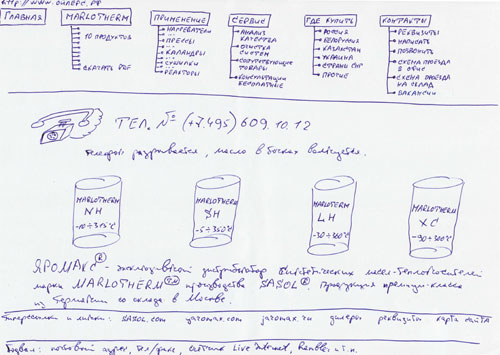 http://www.
ГЛАВНАЯ MARLOTHERM ПРИМЕНЕНИЕ СЕРВИС ГДЕ КУПИТЬ КОНТАКТЫ
10 ПРОДУКТОВ
СКАЧАТЬ PDF
НАГРЕВАТЕЛИ
ПРЕССЫ
КАЛАНДРЫ
СУШИЛКИ
РЕАКТОРЫ
АНАЛИЗ КАЧЕСТВА
ОЧИСТКА СИСТЕМ
СОПУТСТВУЮЩИЕ ТОВАРЫ
КОНСУЛЬТАЦИИ БЕСПЛАТНЫЕ
РОССИЯ
БЕЛОРУССИЯ
КАЗАХСТАН
УКРАИНА
СТРАНЫ СНГ
ПРОЧИЕ
РЕКВИЗИТЫ
НАПИСАТЬ
ПОЗВОНИТЬ
СХЕМА ПРОЕЗДА В ОФИС
СХЕМА ПРОЕЗДА НА СКЛАД
ВАКАНСИИ
ТЕЛ. № (+7.495) 609.10.12
Телефон разрывается, масло в бочках
MARLOTHERM NH -10÷315°C
MARLOTHERM SH -5÷350°C
MARLOTHERM LH -30÷360°C
MARLOTHERM XC -30÷300°C
ЯРОМАКС® - эксклюзивный дистрибьютор синтетических масел-теплоносителей
марки MARLOTHERM производства SASOL®. Продукция премиум-класса
из Германии со склада в Москве.
sasol.com yaromax.com yaromax.ru дилеры реквизиты карта сайта
Подвал: почтовый адрес, тел/факс, счётчик Live Internet, Rambler и т.п.